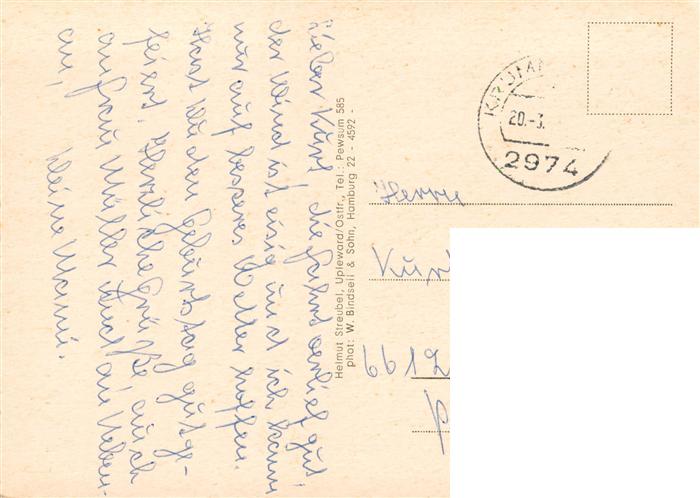 Lieber Kurt, die Fahrt verlief gut;
der Wind ist eisig und ich kann
nur auf besseres Wetter hoffen.
Hast Du den Geburtstag gut ge-
feiert. Herzliche Grüße, auch
an Frau Müller. Auch an Neben-
an,
Deine Mami.
Helmut Streubel, Upleward/Ostfr., Tel.: Pewsum 585
phot: W. Bindseil & Sohn, Hamburg 22 - 4592 -
KRUM
20.-3.
2974
Herrn
Kur
6612